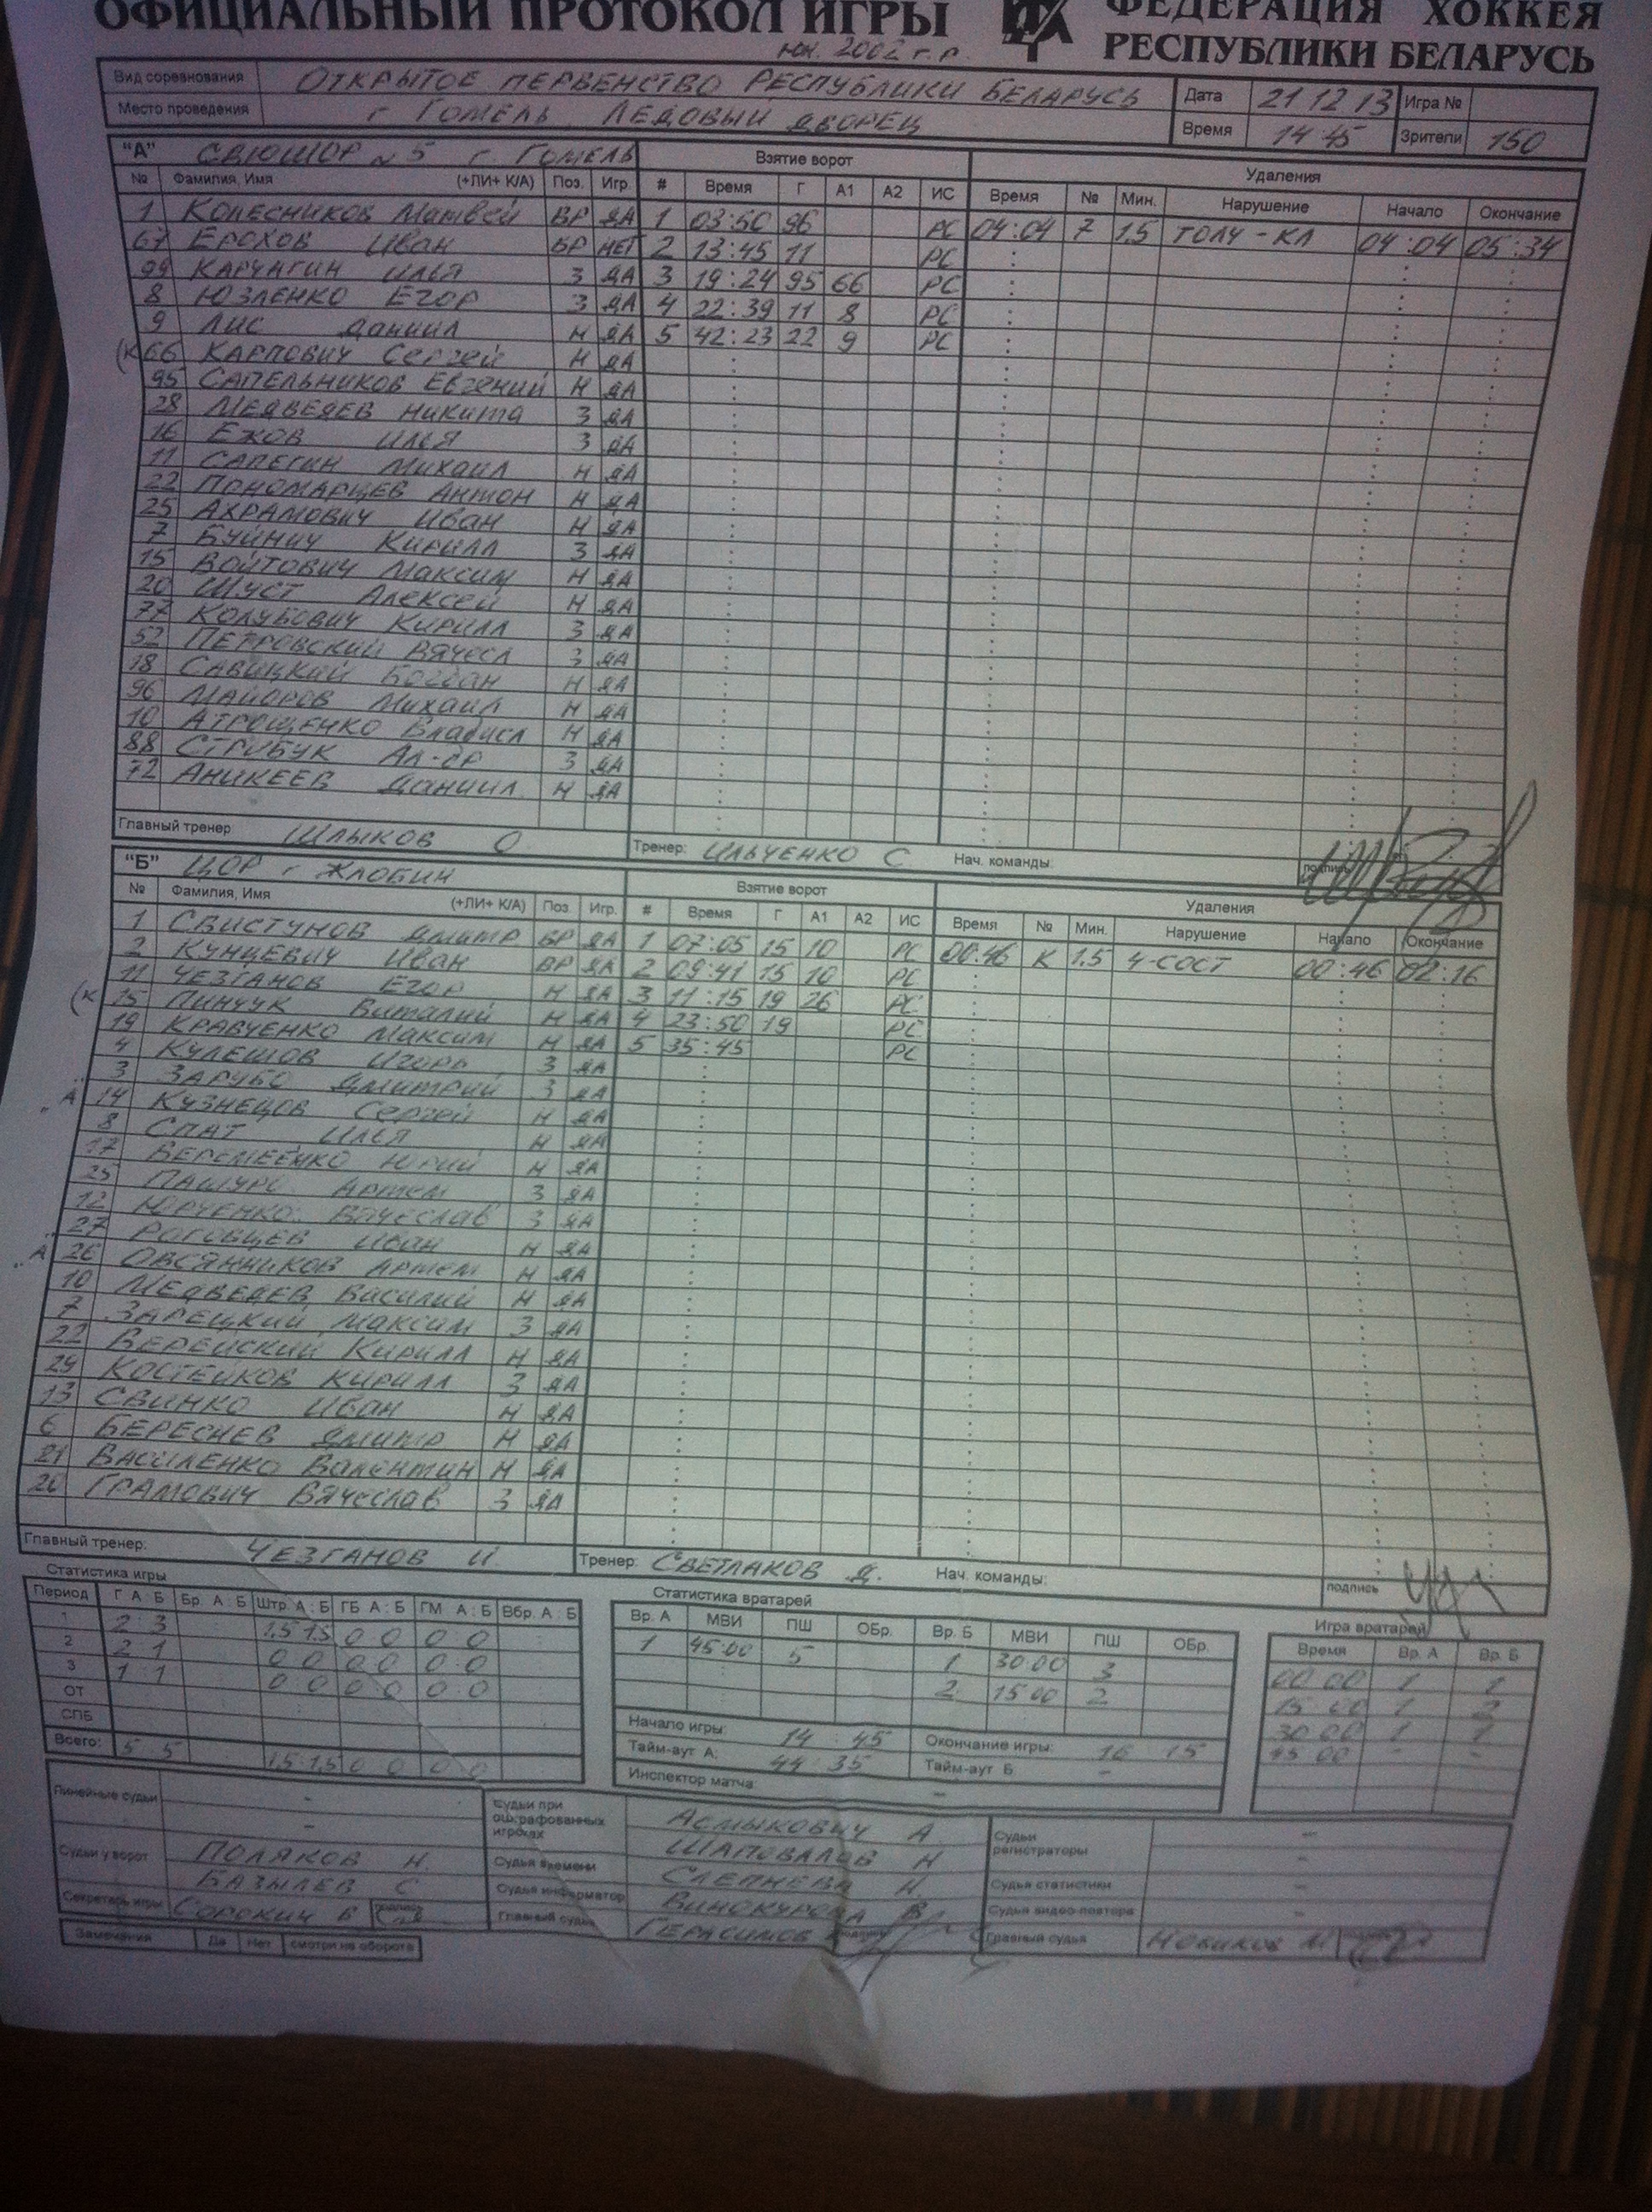 ОФИЦИАЛЬНЫЙ ПРОТОКОЛ ИГРЫ ФЕДЕРАЦИЯ ХОККЕЯ
РЕСПУБЛИКИ БЕЛАРУСЬ
юн. 2002 г.р.
Вид соревнования ОТКРЫТОЕ ПЕРВЕНСТВО РЕСПУБЛИКИ БЕЛАРУСЬ Дата 21 12 13 Игра №
Место проведения г ГОМЕЛЬ ЛЕДОВЫЙ ДВОРЕЦ Время 14 45 Зрители 150
"А" СДЮШОР № 5 г. ГОМЕЛЬ Взятие ворот Удаления
№ Фамилия, Имя (+ЛИ+ К/А) Поз. Игр. # Время Г А1 А2 ИС Время № Мин. Нарушение Начало Окончание
1 КОЛЕСНИКОВ Матвей ВР ДА 1 03:50 96 РС 04:04 7 1.5 ТОЛЧ-КЛ 04:04 05:34
67 ЕРОХОВ Иван ВР НЕТ 2 13:45 11 РС
99 КАРЧИГИН ИЛЬЯ З ДА 3 19:24 95 66 РС
8 ЮЗЛЕНКО ЕГОР З ДА 4 22:39 11 8 РС
9 ЛИС Даниил Н ДА 5 42:23 22 9 РС
(К 66 КАРПОВИЧ Сергей Н ДА
95 САПЕЛЬНИКОВ Евгений Н ДА
28 МЕДВЕДЕВ Никита З ДА
16 ЕЖОВ ИЛЬЯ З ДА
11 САПЕГИН Михаил Н ДА
22 ПОНОМАРЦЕВ Антон Н ДА
25 АХРАМОВИЧ Иван Н ДА
7 БУЙНИЧ Кирилл З ДА
15 ВОЙТОВИЧ Максим Н ДА
20 ШУСТ Алексей Н ДА
77 КОЛУБОВИЧ Кирилл З ДА
52 ПЕТРОВСКИЙ Вячесл З ДА
18 САВИЦКИЙ Богдан Н ДА
96 МАЙОРОВ Михаил Н ДА
10 АТРОЩЕНКО Владисл Н ДА
88 СТРИБУК Ал-др З ДА
72 АНИКЕЕВ Даниил Н ДА
Главный тренер: ШЛЫКОВ О Тренер: ИЛЬЧЕНКО С Нач. команды: подпись
"Б" ЦОР г ЖЛОБИН Взятие ворот Удаления
№ Фамилия, Имя (+ЛИ+ К/А) Поз Игр. # Время Г А1 А2 ИС Время № Мин. Нарушение Начало Окончание
1 СВИСТУНОВ Дмитр ВР ДА 1 07:05 15 10 РС 00:46 К 1.5 Ч-СОСТ 00:46 02:16
2 КУНЦЕВИЧ Иван ВР ДА 2 09:41 15 10 РС
11 ЧЕЗГАНОВ ЕГОР Н ДА 3 11:15 19 26 РС
(К 15 ПИНЧУК Виталий Н ДА 4 23:50 19 РС
19 КРАВЧЕНКО Максим Н ДА 5 35:45 РС
4 КУЛЕШОВ Игорь З ДА
3 ЗАРУБО Дмитрий З ДА
А 14 КУЗНЕЦОВ Сергей Н ДА
8 СПАТ ИЛЬЯ Н ДА
17 ВЕРЕМЕЕНКО Юрий Н ДА
25 ПАШУРО Артем З ДА
12 ЮРЧЕНКО Вячеслав З ДА
27 РОГОВЦЕВ Иван Н ДА
А 26 ОВСЯННИКОВ Артем Н ДА
10 МЕДВЕДЕВ Василий Н ДА
7 ЗАРЕЦКИЙ Максим З ДА
22 ВЕРЕЙСКИЙ Кирилл Н ДА
29 КОСТЕЙКОВ КИРИЛЛ З ДА
13 СВИНКО Иван Н ДА
6 БЕРЕСНЕВ Дмитр Н ДА
21 ВАСИЛЕНКО Валентин Н ДА
20 ГРАМОВИЧ Вячеслав З ДА
Главный тренер: ЧЕЗГАНОВ И. Тренер: СВЕТЛАКОВ Д. Нач. команды: подпись
Статистика игры Статистика вратарей Игра вратарей
Период Г А : Б Бр. А : Б Штр. А : Б ГБ А : Б ГМ А : Б Вбр. А : Б Вр. А МВИ ПШ ОБр. Вр. Б МВИ ПШ ОБр. Время Вр. А Вр. Б
1 2 3 1,5 1,5 0 0 0 0 1 45:00 5 1 30:00 3 00 00 1 1
2 2 1 0 0 0 0 0 0 2 15 00 2 15 00 1 2
3 1 1 0 0 0 0 0 0 30 00 1 1
ОТ 45 00 - -
СПБ Начало игры: 14 : 45 Окончание игры: 16 15
Всего: 5 5 1,5 1,5 0 0 0 0 Тайм-аут А: 44 : 35 Тайм-аут Б -
Инспектор матча: -
Линейные судьи - Судьи при оштрафованных игроках АСМЫКОВИЧ А. Судьи регистраторы -
- ШАПОВАЛОВ Н -
Судьи у ворот ПОЛЯКОВ Н. Судья времени СЛЕПНЕВА Н. Судья статистики -
БАЗЫЛЕВ С Судья информатор ВИНОКУРОВА В Судья видео-повтора -
Секретарь игры СОРОКИЧ Б подпись Главный судья ГЕРАСИМОВ подпись Главный судья НОВИКОВ М
Замечания Да Нет смотри на обороте